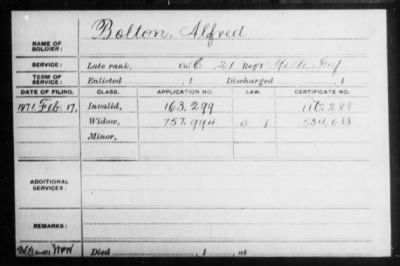 Bolton, Alfred
NAME OF SOLDIER:
SERVICE: Late rank, Co. C, 21 Reg't Mich. Inf
TERM OF SERVICE: Enlisted , 1 Discharged , 1
DATE OF FILING. CLASS. APPLICATION NO. LAW. CERTIFICATE NO.
1871. Feb. 17. Invalid, 163.299
Widow, 757.994
Minor,
ADDITIONAL SERVICES:
REMARKS:
Died , 1 , at